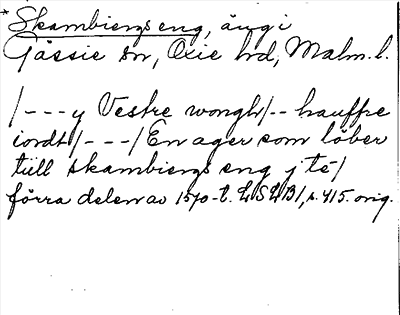 * Skambiergs eng, äng i
Gässie sn, Oxie hd, Malm. l.
/---y Vestre wongh/-- hauffre
iordt/---/ En ager som löber
tiill skambiergs eng j te/
förra delen av 1570-t. LSLB1, s. 415. orig.